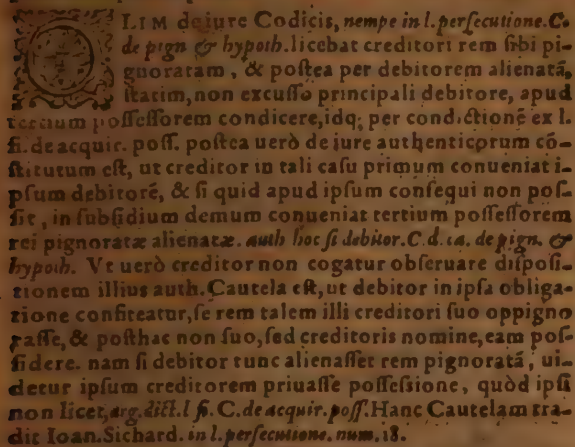 OLIM de iure Codicis, nempe in l. persecutione. C.
de pign & hypoth. licebat creditori rem sibi pi-
gnoratam, & postea per debitorem alienatā,
statim, non excusso principali debitore, apud
tertium possessorem condicere, idq; per condictionē ex l.
fi. de acquir. poss. postea uerò de iure authenticorum cō-
stitutum est, ut creditor in tali casu primum conueniat i-
psum debitorē, & si quid apud ipsum consequi non pos-
sit, in subsidium demum conueniat tertium possessorem
rei pignoratæ alienatæ. auth hoc si debitor. C. d. de pign. &
hypoth. Vt uerò creditor non cogatur obseruare disposi-
tionem illius auth. Cautela est, ut debitor in ipsa obliga-
tione confiteatur, se rem talem illi creditori suo oppigno
rasse, & posthac non suo, sed creditoris nomine, eam pos-
sidere. nam si debitor tunc alienasset rem pignoratā, ui-
detur ipsum creditorem priuasse possessione, quòd ipsi
non licet, arg. dict. l fi. C. de acquir. poss. Hanc Cautelam tra-
dit Ioan. Sichard. in l. persecutione. num. 18.